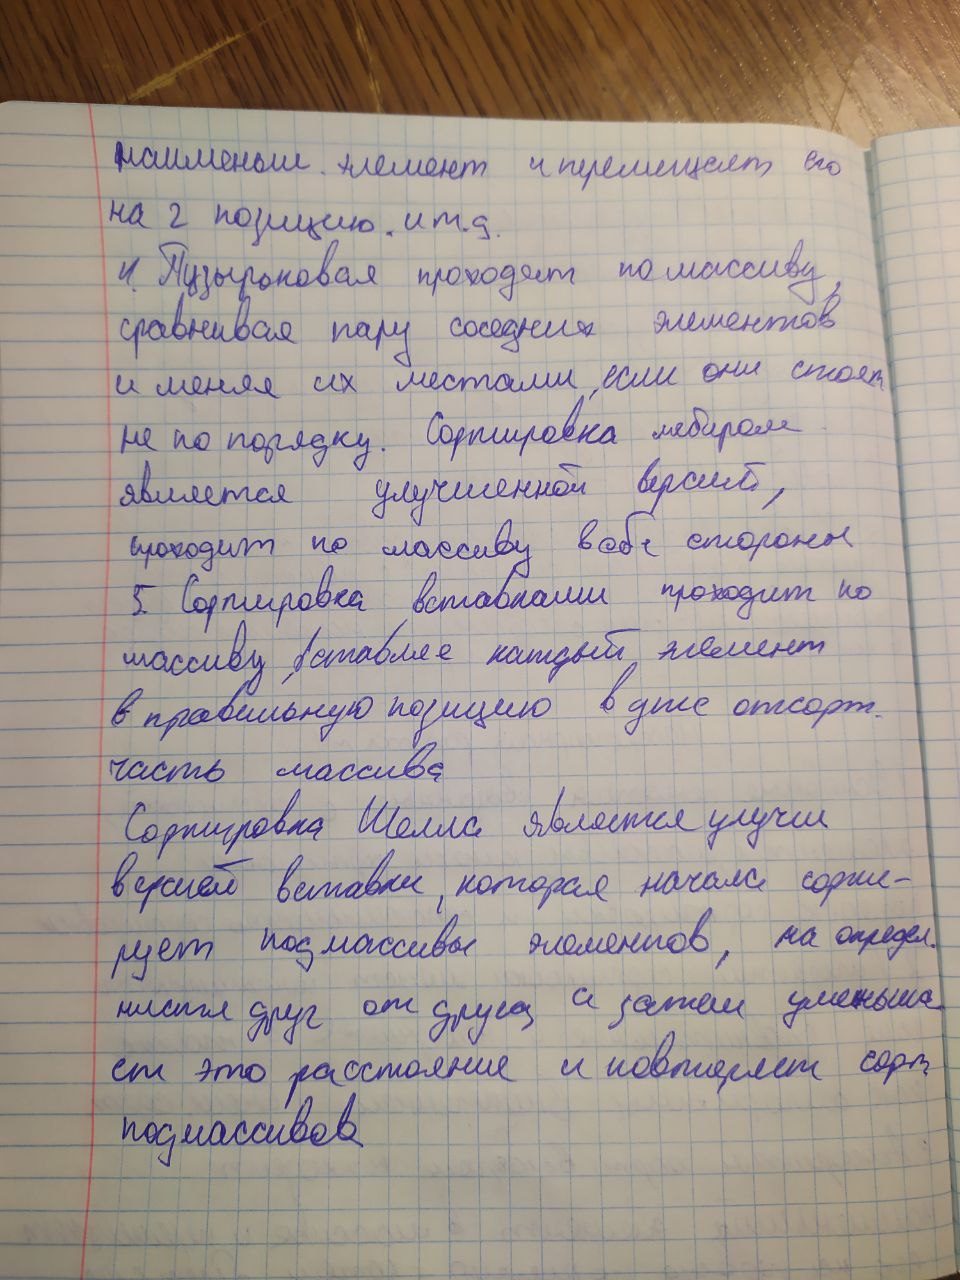 наименьш. элемент и перемещает его
на 2 позицию. и т.д.
4. Пузырьковая проходят по массиву,
сравнивая пару соседних элементов
и меняя их местами, если они стоят
не по порядку. Сортировка
является улучшенной версией,
проходит по массиву в обе стороны
5. Сортировка вставками проходит по
массиву, вставляя каждый элемент
в правильную позицию в уже отсорт.
часть массива
Сортировка Шелла является улучш
версией вставки, которая начала сорти-
рует подмассивы элементов, на определ.
друг от друга, а затем уменьша
ет это расстояние и повторяет сорт.
подмассивов